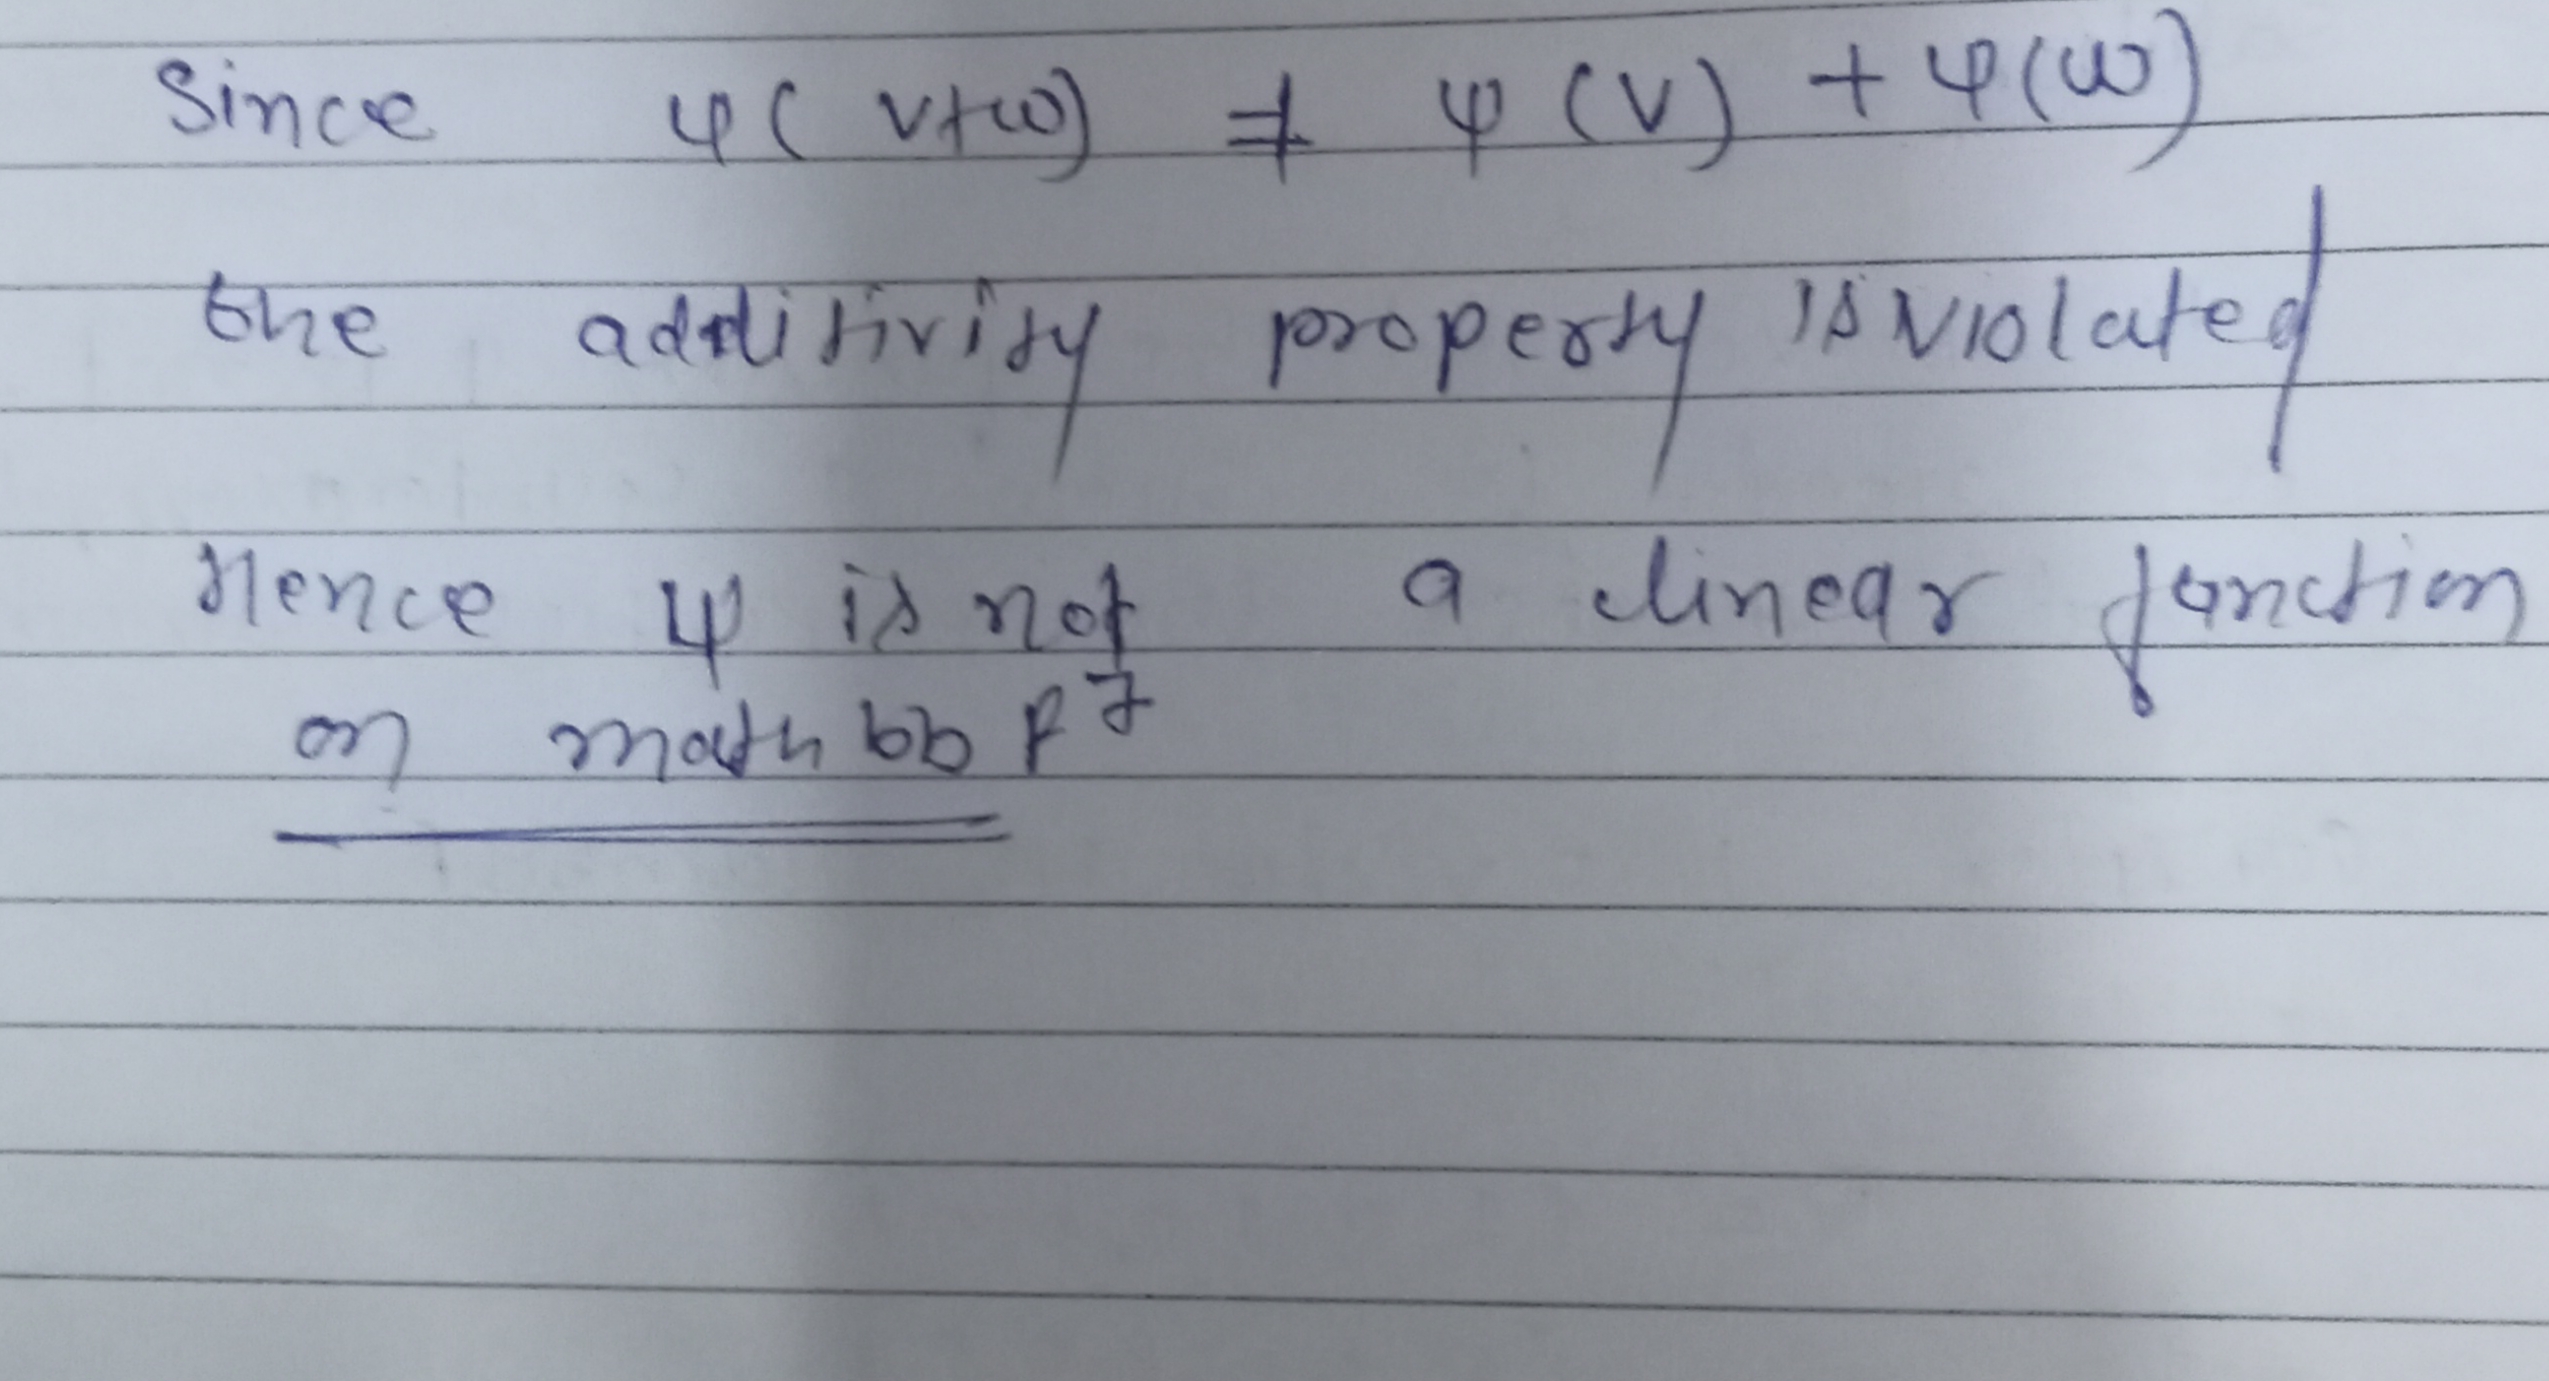 Since φ(v+w) ≠ φ(v) + φ(w)
the additivity property is violated
Hence φ is not a linear function
on mathbb F^7